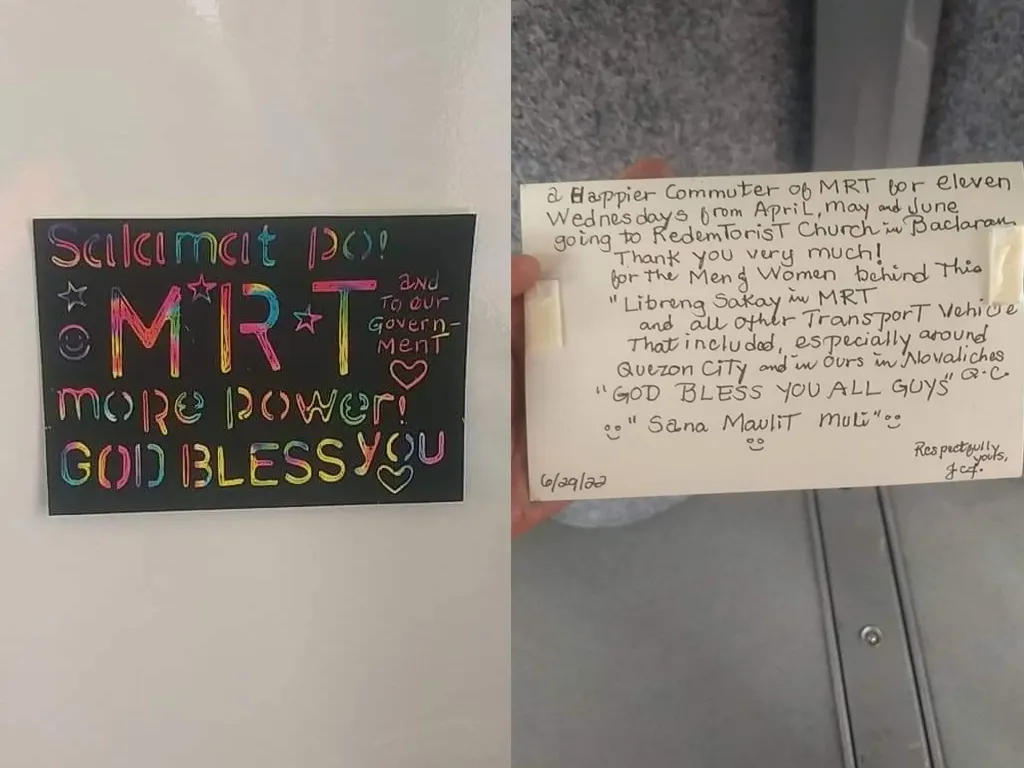 Salamat po!
MR·T
and
To our
Govern-
menT
more power!
GOD BLESS YOU
a Happier Commuter of MRT for eleven
Wednesdays from April, May and June
going to RedemTorisT Church in Baclaran
Thank you very much!
for the Men & Women behind This
"Libreng Sakay in MRT
and all other TransporT Vehicle
That included, especially around
Quezon CiTy and in ours in Novaliches
Q.C.
"GOD BLESS YOU ALL GUYS"
"Sana MauliT muli"
Respectfully
yours,
6/29/22